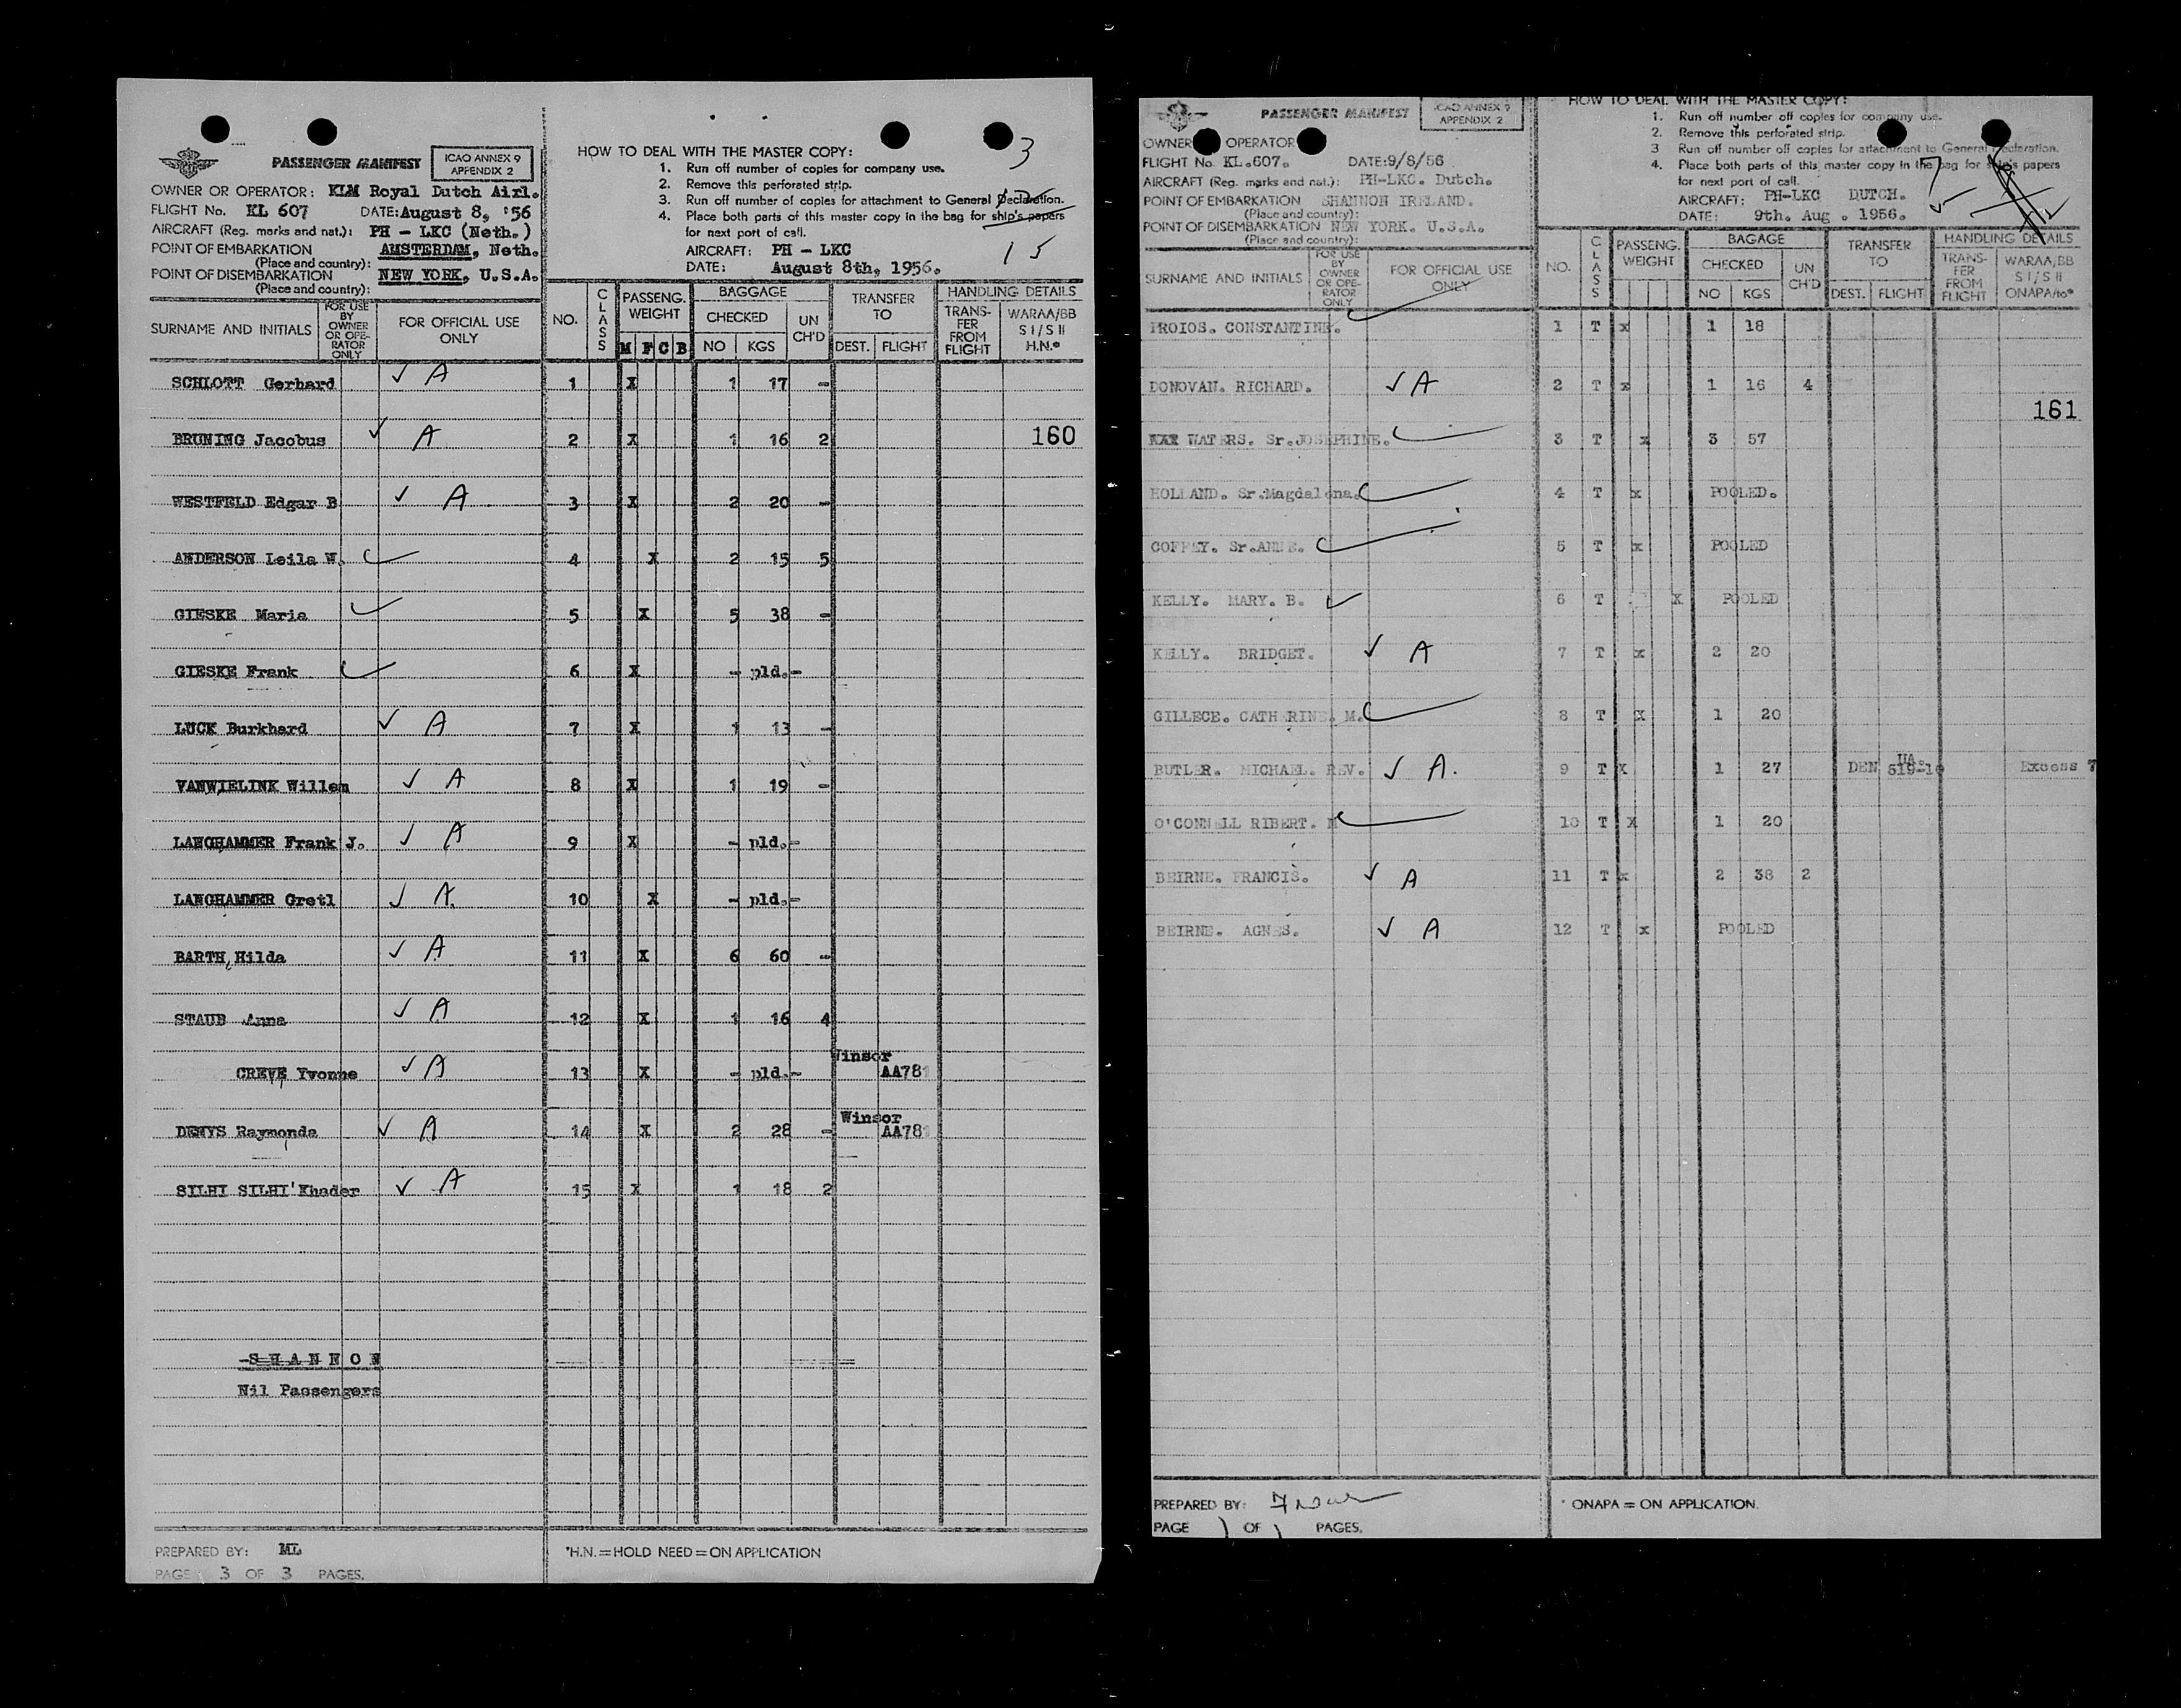 3
PASSENGER MANIFEST
ICAO ANNEX 9
APPENDIX 2
OWNER OR OPERATOR: KLM Royal Dutch Airl.
FLIGHT No. KL 607 DATE: August 8, '56
AIRCRAFT (Reg. marks and nat.): PH - LKC (Neth.)
POINT OF EMBARKATION AMSTERDAM, Neth.
(Place and country):
POINT OF DISEMBARKATION NEW YORK, U.S.A.
(Place and country):
HOW TO DEAL WITH THE MASTER COPY:
1. Run off number of copies for company use.
2. Remove this perforated strip.
3. Run off number of copies for attachment to General Declaration.
4. Place both parts of this master copy in the bag for ship's papers
for next port of call.
AIRCRAFT: PH - LKC
DATE: August 8th, 1956.
15
SURNAME AND INITIALS FOR USE BY OWNER OR OPE-RATOR ONLY FOR OFFICIAL USE ONLY NO. CLASS PASSENG. WEIGHT M F C B BAGGAGE CHECKED NO KGS UN CH'D TRANSFER TO DEST. FLIGHT HANDLING DETAILS TRANS-FER FROM FLIGHT WARAA/BB S I/S II H.N.*
SCHLOTT Gerhard ✓ A 1 X 1 17 -
BRUNING Jacobus ✓ A 2 X 1 16 2 160
WESTFELD Edgar B ✓ A 3 X 2 20 -
ANDERSON Leila W. ✓ 4 X 2 15 5
GIESKE Maria ✓ 5 X 5 38 -
GIESKE Frank ✓ 6 X - pld.-
LUCK Burkhard ✓ A 7 X 1 13 -
VANWIELINK Willem ✓ A 8 X 1 19 -
LANGHAMMER Frank J. ✓ A 9 X - pld.-
LANGHAMMER Gretl ✓ A. 10 X - pld.-
BARTH, Hilda ✓ A 11 X 6 60 -
STAUB Anna ✓ A 12 X 1 16 4
CREVE Yvonne ✓ A 13 X - pld.- Winsor AA781
DENYS Raymonda ✓ A 14 X 2 28 - Winsor AA781
SILHI SILHI'Khader ✓ A 15 X 1 18 2
-S H A N N O N
Nil Passengers
PREPARED BY: ML
*H.N. = HOLD NEED = ON APPLICATION
PAGE 3 OF 3 PAGES.
PASSENGER MANIFEST
ICAO ANNEX 9
APPENDIX 2
OWNER OPERATOR
FLIGHT No. KL.607. DATE: 9/8/56
AIRCRAFT (Reg. marks and nat.): PH-LKC. Dutch.
POINT OF EMBARKATION SHANNON IRELAND.
(Place and country):
POINT OF DISEMBARKATION NEW YORK. U.S.A.
(Place and country):
HOW TO DEAL WITH THE MASTER COPY:
1. Run off number off copies for company use.
2. Remove this perforated strip.
3 Run off number off copies for attachment to General Declaration.
4. Place both parts of this master copy in the bag for ship's papers
for next port of call.
AIRCRAFT: PH-LKC DUTCH.
DATE: 9th. Aug . 1956.
SURNAME AND INITIALS FOR USE BY OWNER OR OPE-RATOR ONLY FOR OFFICIAL USE ONLY NO. CLASS PASSENG. WEIGHT BAGAGE CHECKED NO KGS UN CH'D TRANSFER TO DEST. FLIGHT HANDLING DETAILS TRANS-FER FROM FLIGHT WARAA/BB S I/S II ONAPA/to*
PROIOS. CONSTANTINE. ✓ 1 T x 1 18
DONOVAN. RICHARD. ✓ A 2 T x 1 16 4
161
WATERS. Sr.JOSEPHINE. ✓ 3 T x 3 57
HOLLAND. Sr.Magdalena. ✓ 4 T x POOLED.
COFFEY. Sr.ANNE. ✓ 5 T x POOLED
KELLY. MARY. B. ✓ 6 T X POOLED
KELLY. BRIDGET. ✓ A 7 T x 2 20
GILLECE. CATHERINE. M. ✓ 8 T X 1 20
BUTLER. MICHAEL. REV. ✓ A. 9 T X 1 27 DEN UA. Excess 7
O'CONNELL RIBERT. M ✓ 10 T X 1 20
BEIRNE. FRANCIS. ✓ A 11 T x 2 38 2
BEIRNE. AGNES. ✓ A 12 T x POOLED
PREPARED BY:
* ONAPA = ON APPLICATION.
PAGE 1 OF 1 PAGES.